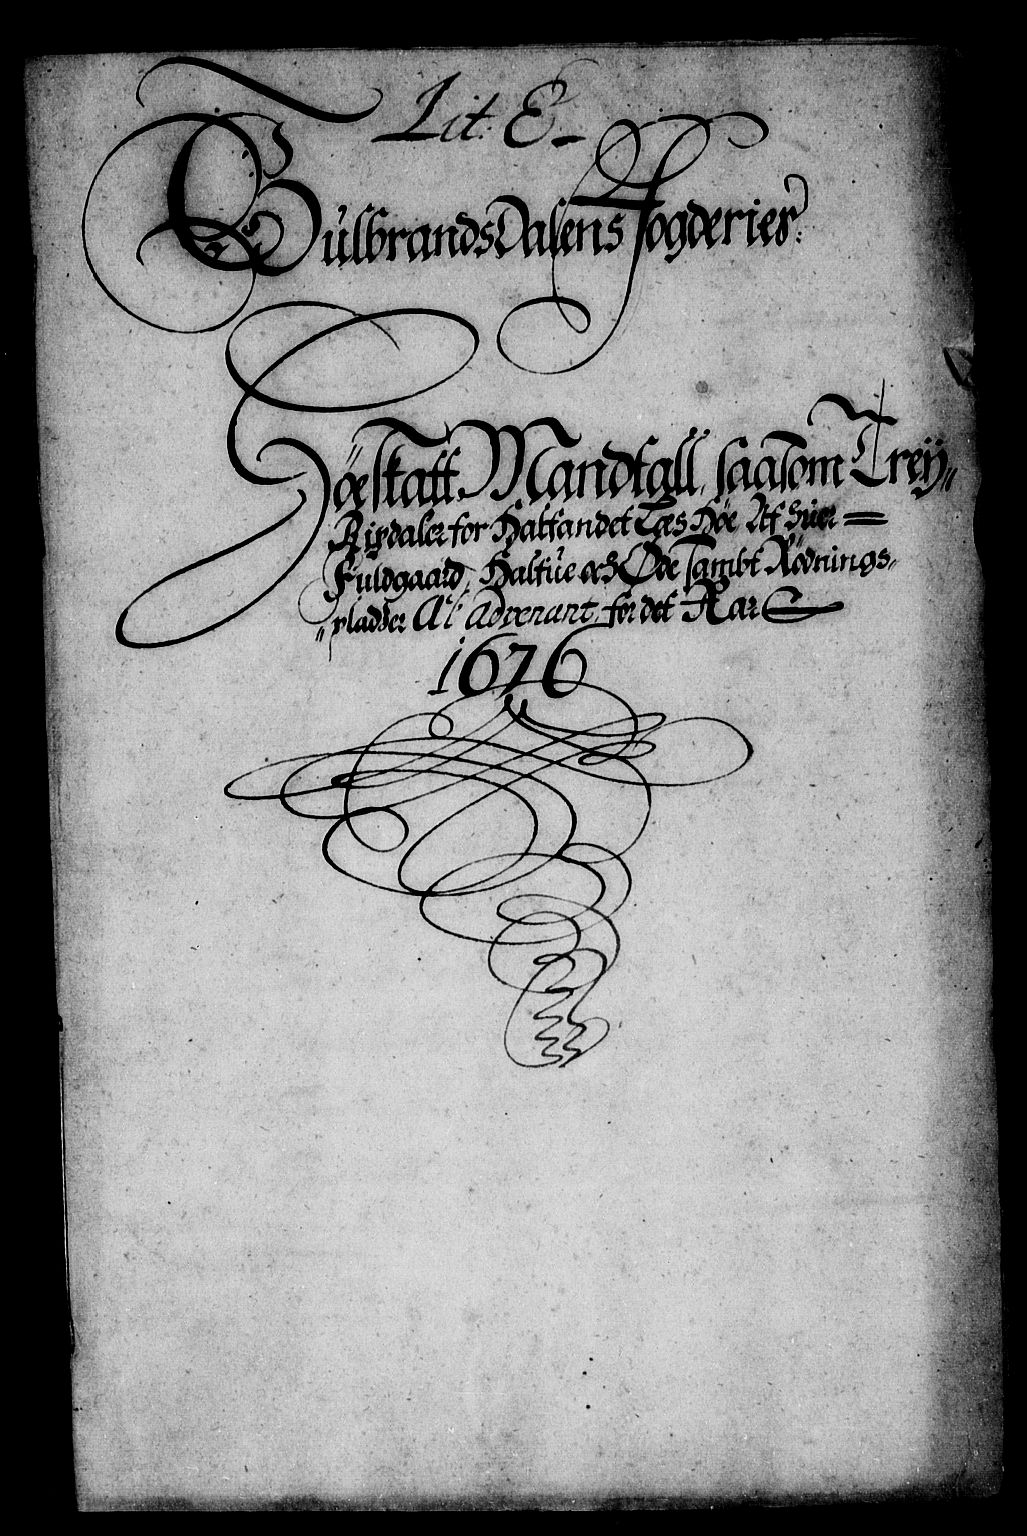 Lit: E
GulbrandsDalens fogderies:
Höeskatt Mandtall, saasom Treÿ
Rixdaler for Halfandet Læs Höe Af huer
Fuldgaard, Halfue och Øde sambt Rödnings
pladser Al' Advenant, for det Aar
1676